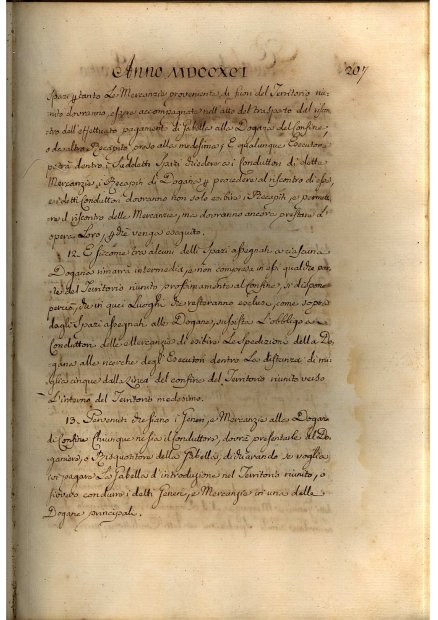 Anno MDCCXCI 207
Spazi, e tanto Le Mercanzie provenienti di fuori del Territorio riu-
nito dovranno essere accompagnate nell'atto del trasporto dal riscon-
tro dell'effettuato pagamento di Gabella alla Dogana del Confine,
o da altro Recapito preso alla medesima; E qualunque Esecutore
potrà dentro i Suddetti Spazi chiedere a i Conduttori di dette
Mercanzie i Recapiti di Dogana p procedere al riscontro di esse,
e i detti Conduttori dovranno non solo esibire i Recapiti, e permette-
re il riscontro delle Mercanzie, ma dovranno ancora prestare l'
opera Loro, p che venga eseguito.
12. E siccome tra alcuni delli Spazi assegnati a ciascuna
Dogana rimarrà intermedia, e non compresa in essi qualche por-
te del Territorio riunito prossimamente al Confine, si dispone
perciò, che in quei Luoghi che resteranno esclusi, come sopra
dagli Spazi assegnati alle Dogane, sussista L'obbligo a i
Conduttori delle Mercanzie di esibire Le spedizione della Do-
gana alle ricerche degli Esecutori dentro La distanza di mi-
glia cinque dalla Linea del confine del Territorio riunito verso
L'interno del Territorio medesimo.
13. Pervenuti che siano i Generi, e Mercanzie alle Dogane
di Confine Chiunque ne sia il Conduttore, dovrà presentarle al Do-
ganiere, o Risquotitore della Gabella, dichiarando se voglia
ivi pagare La Gabella d'introduzione nel Territorio riunito, o
sivvero condurre i detti Generi, e Mercanzie in una delle
Dogane principali.